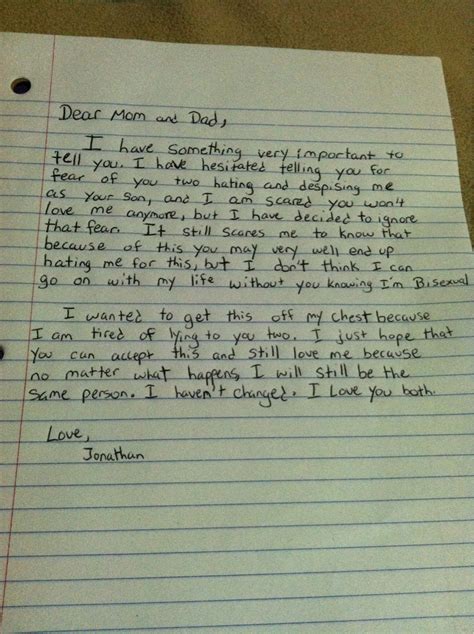 Dear Mom and Dad,
I have something very important to
tell you. I have hesitated telling you for
fear of you two hating and despising me
as your son, and I am scared you won't
love me anymore, but I have decided to ignore
that fear. It still scares me to know that
because of this you may very well end up
hating me for this, but I don't think I can
go on with my life without you knowing I'm Bisexual
I wanted to get this off my chest because
I am tired of lying to you two. I just hope that
you can accept this and still love me because
no matter what happens, I will still be the
same person. I haven't changed. I Love you both.
Love,
Jonathan